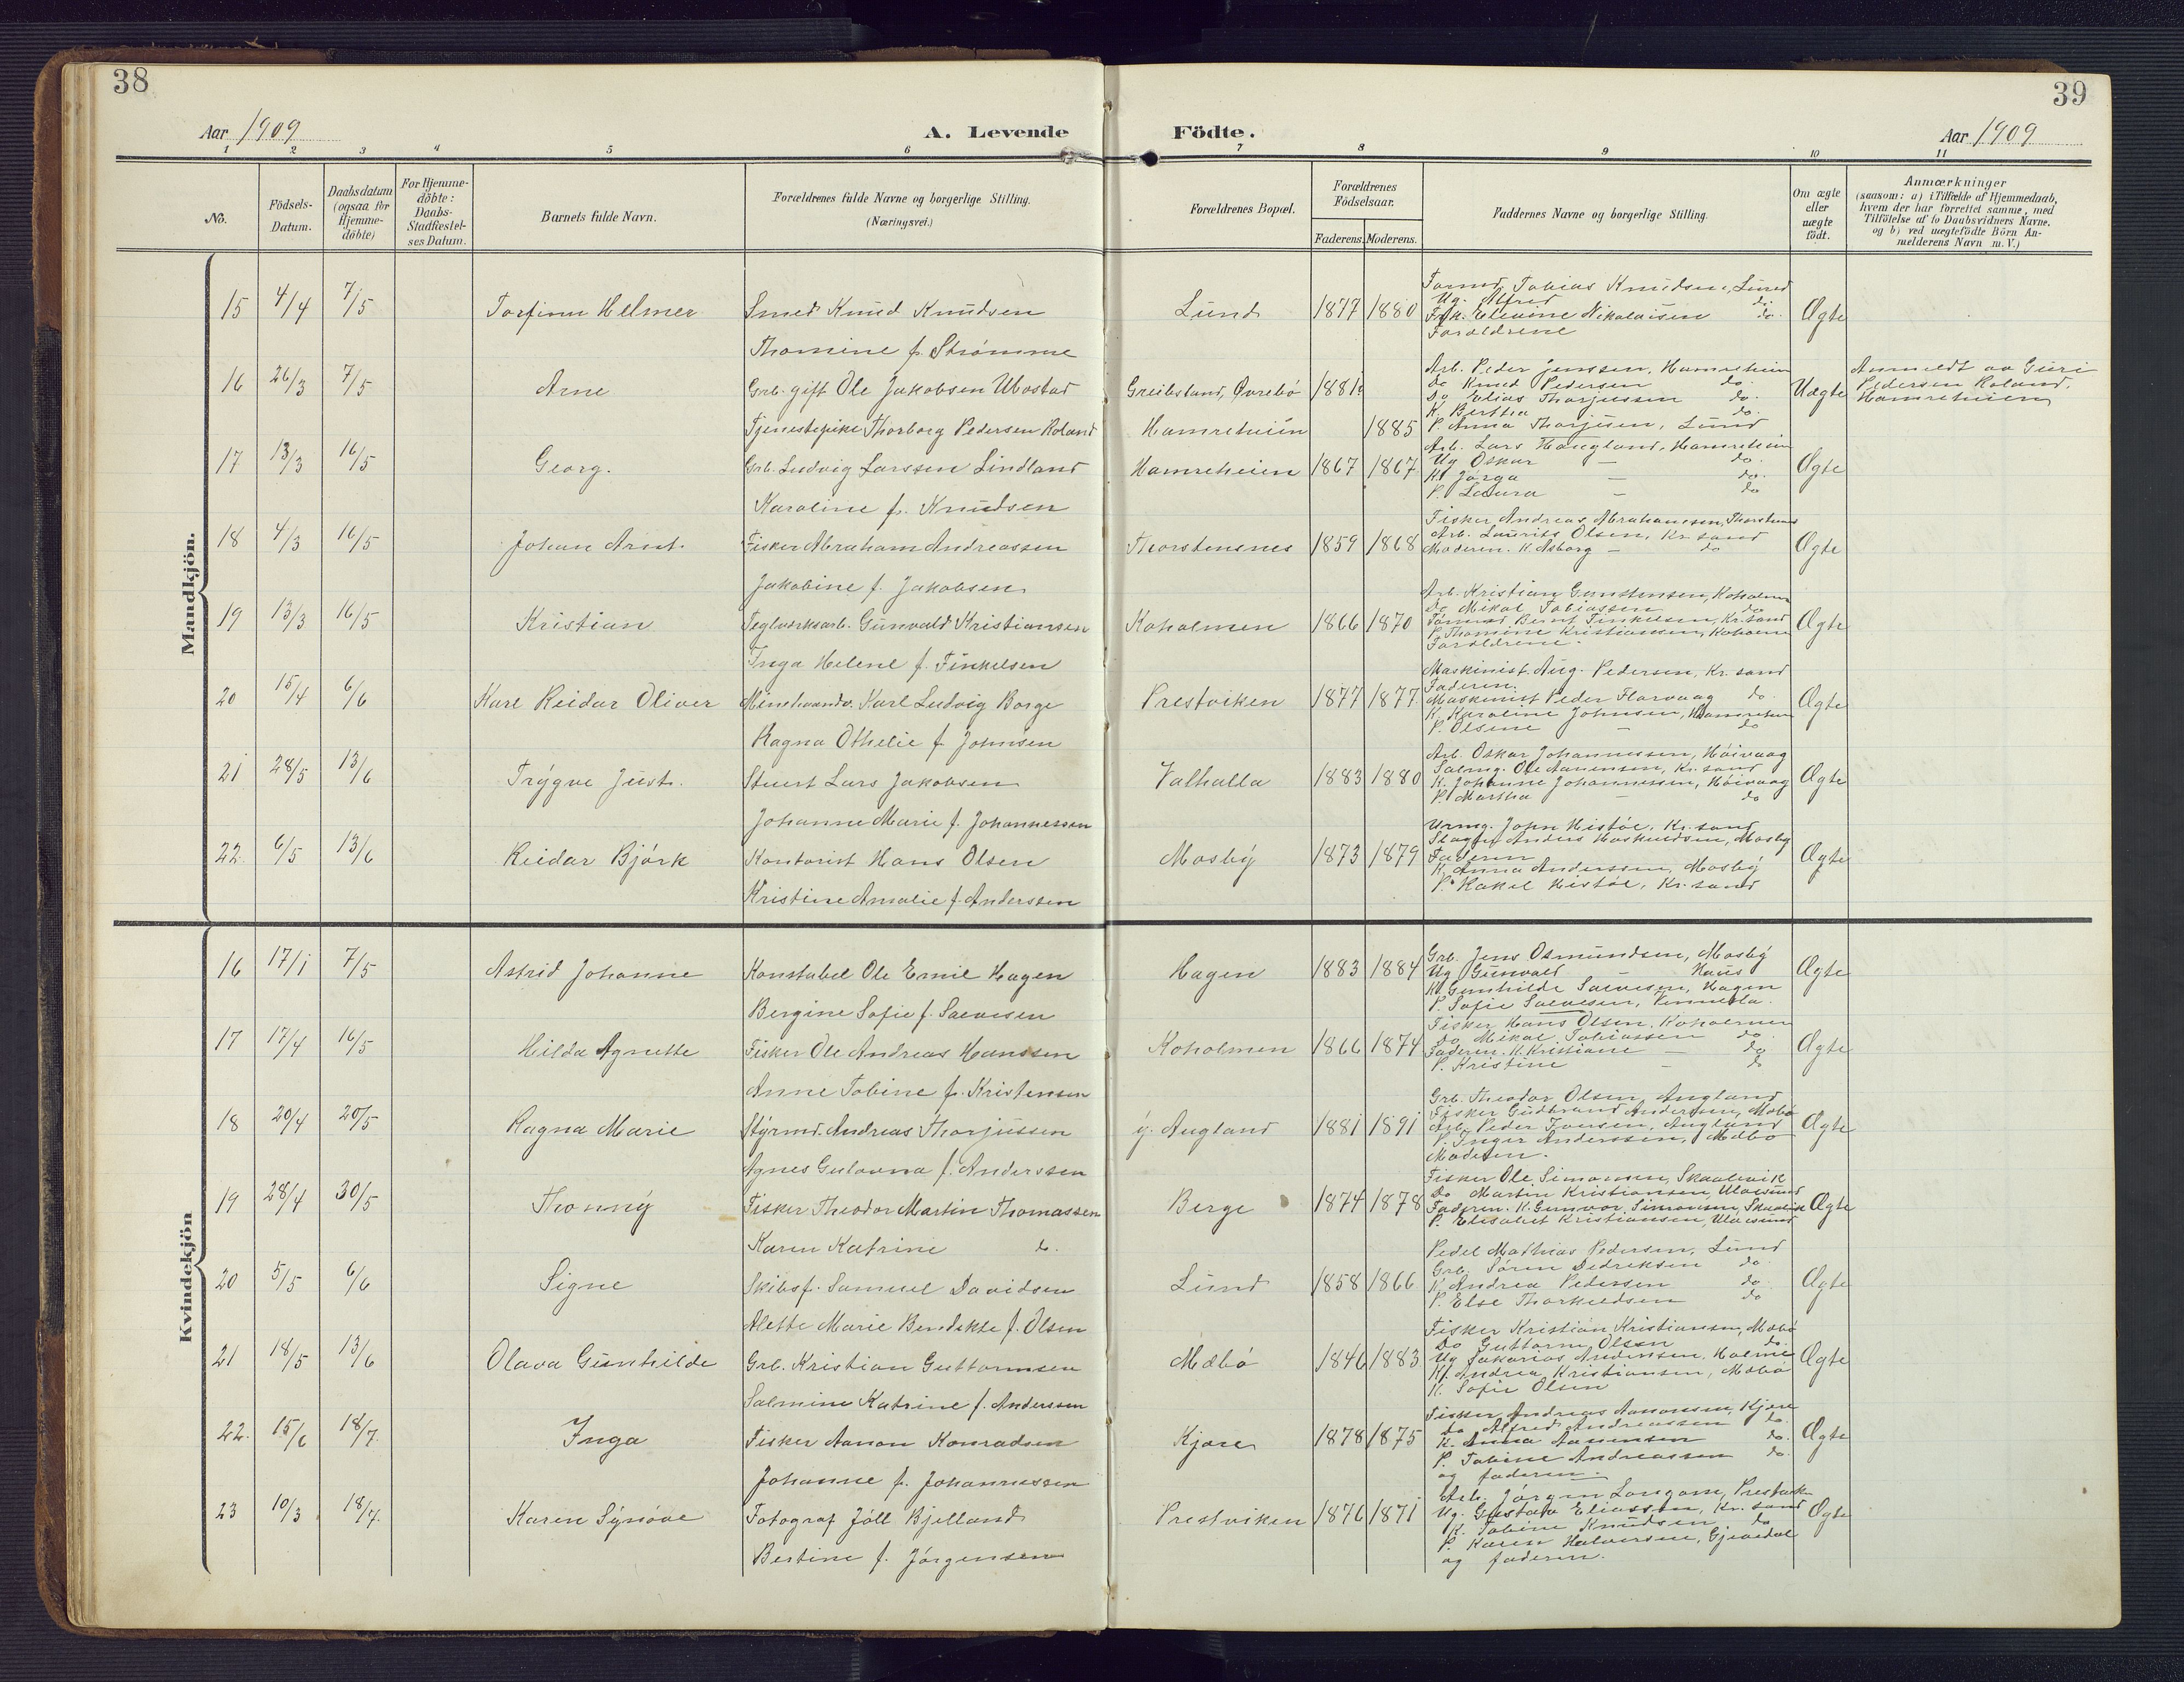 38
39
Aar 1909
A. Levende Födte.
Aar 1909
1 2 3 4 5 6 7 8 9 10 11
No.
Födsels-Datum.
Daabsdatum (ogsaa for Hjemme-döbte)
For Hjemme-döbte: Daabs-Stadfæstel-ses Datum.
Barnets fulde Navn.
Forældrenes fulde Navne og borgerlige Stilling. (Næringsvei.)
Forældrenes Bopæl.
Forældrenes Födselsaar.
Faderens. Moderens.
Faddernes Navne og borgerlige Stilling.
Om ægte eller uægte födt.
Anmærkninger
(saasom: a) i Tilfælde af Hjemmedaab,
hvem der har forrettet samme, med
Tilföielse af to Daabsvidners Navne,
og b) ved uægtefödte Börn An-
melderens Navn m. V.)
Mandkjön.
15 4/4 7/5 Torfinn Helmer Smed Knud Knudsen Lund 1877 1880 Ægte
Thomine f. Strömme
Tobias Knudsen, Lund
Ug. Alfred do.
Frk. Elevine Nikolaisen do.
Forældrene
16 26/3 7/5 Arne Grb. gift Ole Jakobsen Ubostad Greibsland, Øvrebö 1881 Uægte
Tjenestepike Thorborg Pedersen Roland Hamreheien 1885
Arb. Peder Jenssen, Hamreheien
do Knud Pedersen do.
Do Elias Thorjussen do.
K. Bertha do.
P. Anna Thorjusen, Lund
Anmeldt av Guri
Pedersen Roland,
Hamreheien
17 13/3 16/5 Georg. Grb. Ludvig Larssen Lindland Hamreheien 1867 1867 Ægte
Karoline f. Knudsen
Arb. Lars Haugland, Hamreheien
Ug Oskar — do.
K. Jörga — do.
P. Laura — do
18 4/3 16/5 Johan Arnt. Fisker Abraham Andreassen Thorstensnes 1859 1868 Ægte
Jakobine f. Jakobsen
Fisker Andreas Abrahamsen, Thorstensnes
Arb. Laurits Olsen, Kr. sand
Moderen. K. Asborg — do
19 13/3 16/5 Kristian Teglverksarb. Gunvald Kristiansen Koholmen 1866 1870 Ægte
Inga Helene f. Finkelsen
Arb. Kristian Gunstensen, Koholmen
Do Mikal Tobiassen do
Tömmd Bernt Finkelsen, Kr. sand
P. Thomine Kristiansen, Koholmen
Forældrene.
20 15/4 6/6 Karl Reidar Oliver Minehaandv. Karl Ludvig Borge Prestviken 1877 1877 Ægte
Ragna Othelie f. Johnsen
Maskinist. Aug. Pedersen, Kr. sand
Faderen.
Maskinist Peder Flarvaag do.
K. Karoline Johnsen, Hamreheien
P. Olsine — do
21 28/5 13/6 Trygve Just. Stuert Lars Jakobsen Valhalla 1883 1880 Ægte
Johanne Marie f. Johannessen
Arb. Oskar Johannessen, Höivaag
Salmg. Ole Aanensen, Kr. sand
K. Johanne Johannessen, Höivaag
P. Martha — do
22. 6/5 13/6 Reidar Björk Kontorist Hans Olsen Mosby 1873 1879 Ægte
Kristine Amalie f. Anderssen
Urmg. John Histöl, Kr. sand
Slagter Anders Hoskuldsen, Mosby
Faderen
K. Anna Anderssen, Mosby
P. Rakel Histöl, Kr. sand
Kvindekjön
16 17/1 7/5 Astrid Johanne Konstabel Ole Emil Hagen Hagen 1883 1884 Ægte
Bergine Sofie f. Salvesen
Grb. Jens Osmundsen, Mosby
Ug Gunvald — Haus
K. Gunhilde Salvesen, Hagen
P. Sofie Salvesen, Vennesla.
17 17/4 16/5 Hilda Agnette Fisker Ole Andreas Hanssen Koholmen 1866 1874 Ægte
Anne Tobine f. Kristensen
Fisker Hans Olsen, Koholmen
Do Mikal Tobiassen do
Faderen. K. Kristiane — do
P. Kristine — do
18 20/4 20/5 Ragna Marie Styrmd. Andreas Thorjussen y. Augland 1881 1891 Ægte
Agnes Gulovna f. Anderssen
Grb. Theodor Olsen, Augland
Fisker Gudbrand Anderssen, Mæbö
Arb. Peder Iversen, Augland
P. Inger Anderssen, Mæbö
Moderen.
19 28/4 30/5 Thonny Fisker Theodor Martin Thomassen Berge 1874 1878 Ægte
Karen Katrine do.
Fisker Ole Simonsen, Skaalevik
Do Martin Kristiansen, Ulvesund
Faderen. K. Gunvor Simonsen, Skaalevik
P. Elisabet Kristiansen, Ulvesund
20 5/5 6/6 Signe Skibsf. Samuel Davidsen Lund 1858 1866 Ægte
Alette Marie Bendikte f. Olsen
Pedel Mathias Pedersen, Lund
Grb. Sören Dedreksen do.
K. Andrea Pedersen do.
P. Else Thorkildsen do
21 18/5 13/6 Olava Gunhilde Grb. Kristian Guttormsen Mæbö 1846 1883 Ægte
Salmine Katrine f. Anderssen
Fisker Kristian Kristiansen, Mæbö
Do Guttorm Olsen do.
Ug Sakarias Anderssen, Holme
K. Andrea Kristiansen, Mæbö
K. Sofie Olsen
22. 15/6 18/7. Inga Fisker Aanon Konradsen Kjære 1878 1875 Ægte
Johanne f. Johannessen
Fisker Andreas Aanonsen, Kjære
do Alfred Andreassen do.
K. Anna Aanensen do.
P. Tobine Andreassen do.
og faderen.
23 10/3 18/7. Karen Synöve Fotograf Jöll Bjelland Prestviken 1876 1871 Ægte
Bertine f. Jörgensen
Arb. Jörgen Langom, Prestviken
Ug. Gustav Eliassen, Kr. sand
K. Tobine Knudsen do
P. Karen Halvorsen, Gjevedal
og faderen.